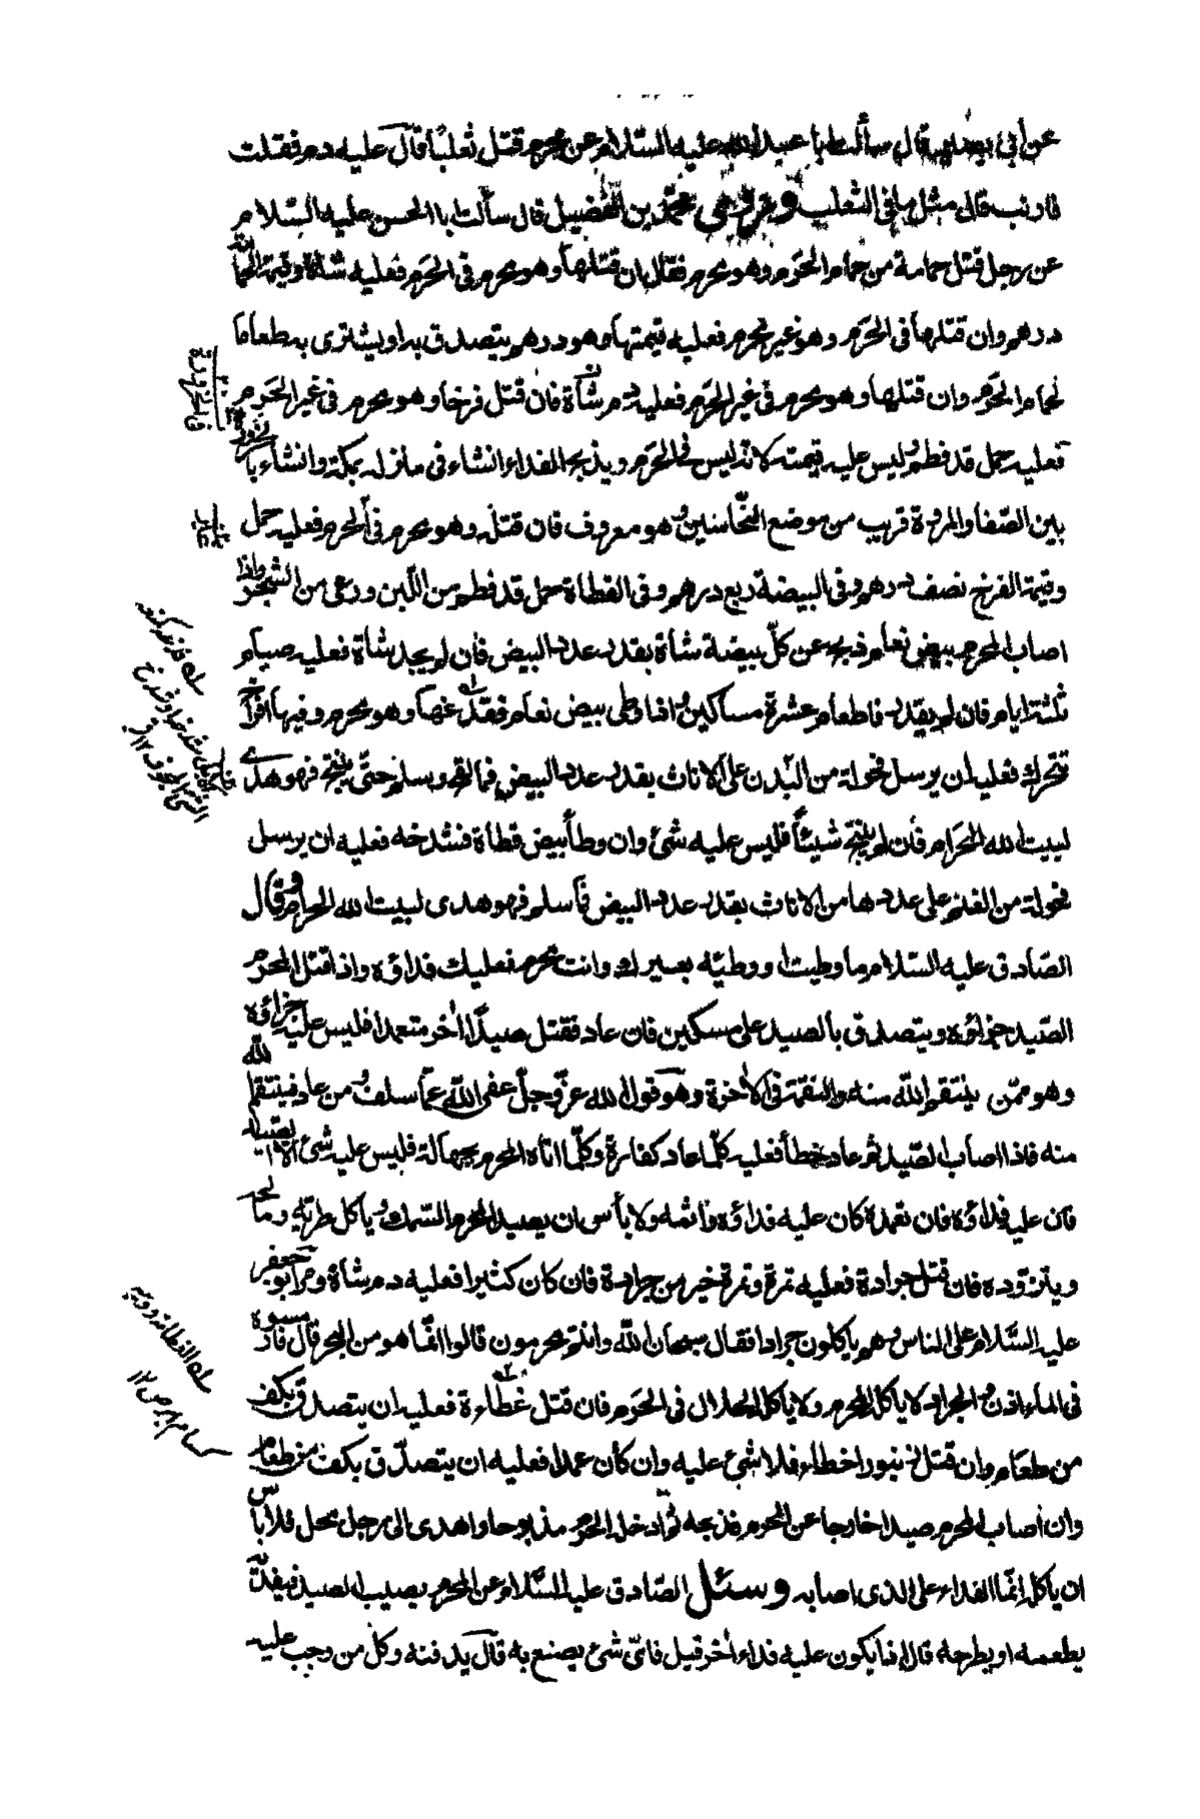 عن أبي بصير قال سألت ابا عبدالله عليه السّلام عن محرم قتل ثعلبًا قال عليه دم فقلت
فارنب قال مثل ما في الثعلب وروى محمّد بن الفضيل قال سألت ابا الحسن عليه السّلام
عن رجل قتل حمامة من حمام الحرم وهو محرم فقال ان قتلها وهو محرم في الحرم فعليه شاة وقيمة الحمامة
درهم وان قتلها في الحرم وهو غير محرم فعليه قيمتها وهو درهم يتصدق به او يشتري به طعاما
لحمام الحرم وان قتلها وهو محرم في غير الحرم فعليه دم شاة فان قتل فرخا وهو محرم في غير الحرم
فعليه حمل قد فطم وليس عليه قيمته لانه ليس في الحرم ويذبح الفداء ان شاء في منزله بمكة وان شاء بالحزورة
بين الصّفا والمروة قريب من موضع النّخاسين وهو معروف فان قتله وهو محرم في الحرم فعليه حمل
وقيمة الفرخ نصف درهم وفي البيضة ربع درهم وفي القطاة حمل قد فطم من اللّبن ورعى من الشجر واذا
اصاب المحرم بيض نعام ذبح عن كلّ بيضة شاة بقدر عدد البيض فان لم يجد شاة فعليه صيام
ثلثة ايام فان لم يقدر فاطعام عشرة مساكين واذا وطى بيض نعام ففدغها وهو محرم وفيها افراخ
تتحرك فعليه ان يرسل فحولة من البدن على الاناث بقدر عدد البيض فما لقح وسلم حتّى ينتج فهو هدي
لبيت الله الحرام فان لم ينتج شيئًا فليس عليه شئ وان وطأ بيض قطاة فشدخه فعليه ان يرسل
فحولة من الغنم على عددها من الاناث بقدر عدد البيض فما سلم فهو هدى لبيت الله الحرام وقال
الصّادق عليه السّلام ما وطيت او وطئه بعيرك وانت محرم فعليك فداؤه واذا قتل المحرم
الصّيد جزاؤه ويتصدق بالصيد على مسكين فان عاد فقتل صيدًا اٰخر متعمدا فليس عليه جزاؤه
وهو ممّن ينتقم الله منه والنقمة في الاٰخرة وهو قول الله عزّوجلّ عفى الله عمّا سلف ومن عاد فينتقم الله
منه فاذا اصاب الصّيد ثم عاد خطأ فعليه كلّما عاد كفارة وكلّما اتاه المحرم بجهالة فليس عليه شئ الا الصّيد
فان عليه فداؤه فان تعمده كان عليه فداؤه واثمه ولا بأس ان يصيد المحرم السّمك وياكل طريّه ومالحه
ويتزوّده فان قتل جرادة فعليه تمرة وتمرة خير من جرادة فان كان كثيرا فعليه دم شاة ومر ابو جعفر
عليه السّلام على الناس وهم ياكلون جرادا فقال سبحان الله وانتم محرمون قالوا انّما هو من البحر قال فارمسوه
في الماء اذن والجراد لا ياكله المحرم ولا ياكله الحلال في الحرم فان قتل عظاءة فعليه ان يتصدق بكف
من طعام وان قتل زنبورا خطاء فلا شئ عليه وان كان عمدا فعليه ان يتصدّق بكف من طعام
وان أصاب المحرم صيدا خارجا عن الحرم فذبحه ثم ادخله الحرم مذبوحا واهدى الى رجل محل فلا بأس
ان ياكله انّما الفداء على الذي اصابه وسئل الصّادق عليه السّلام عن المحرم يصيب الصيد فيفديه
يطعمه او يطرحه قال اذا يكون عليه فداء اٰخر قيل فائّ شئ يصنع به قال يدفنه وكل من وجب عليه